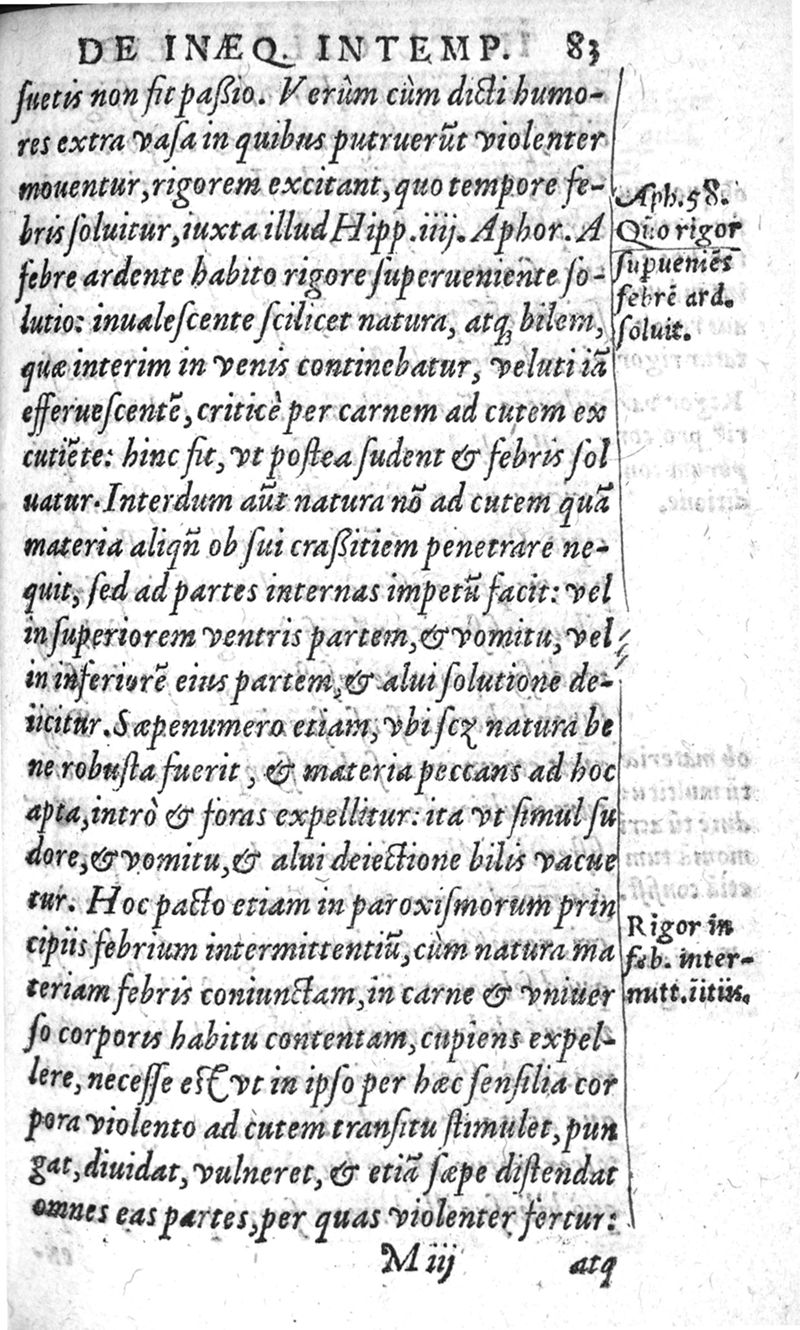 DE INÆQ. INTEMP. 83
suetis non fit paßio. Verùm cùm dicti humo-
res extra vasa in quibus putruerũt violenter
mouentur, rigorem excitant, quo tempore fe-
bris soluitur, iuxta illud Hipp. iiij. Aphor. A
febre ardente habito rigore superueniente so-
lutio: inualescente scilicet natura, atq; bilem,
quæ interim in venis continebatur, veluti iã
efferuescentẽ, criticè per carnem ad cutem ex
cutiẽte: hinc fit, vt postea sudent & febris sol
uatur. Interdum aũt natura nõ ad cutem quã
materia aliqñ ob sui craßitiem penetrare ne-
quit, sed ad partes internas impetũ facit: vel
in superiorem ventris partem, & vomitu, vel
in inferiorẽ eius partem, & alui solutione de-
iicitur. Sæpenumero etiam, vbi scz natura be
ne robusta fuerit, & materia peccans ad hoc
apta, intrò & foras expellitur: ita vt simul su
dore, & vomitu, & alui deiectione bilis vacue
tur. Hoc pacto etiam in paroxismorum prin
cipiis febrium intermittentiũ, cùm natura ma
teriam febris coniunctam, in carne & vniuer
so corporis habitu contentam, cupiens expel-
lere, necesse est vt in ipso per hæc sensilia cor
pora violento ad cutem transitu stimulet, pun
gat, diuidat, vulneret, & etiã sæpe distendat
omnes eas partes, per quas violenter fertur:
M iij atq
Aph. 58.
Quo rigor
supueniẽs
febrẽ ard.
soluit.
Rigor in
feb. inter-
mitt. ĩitiis.